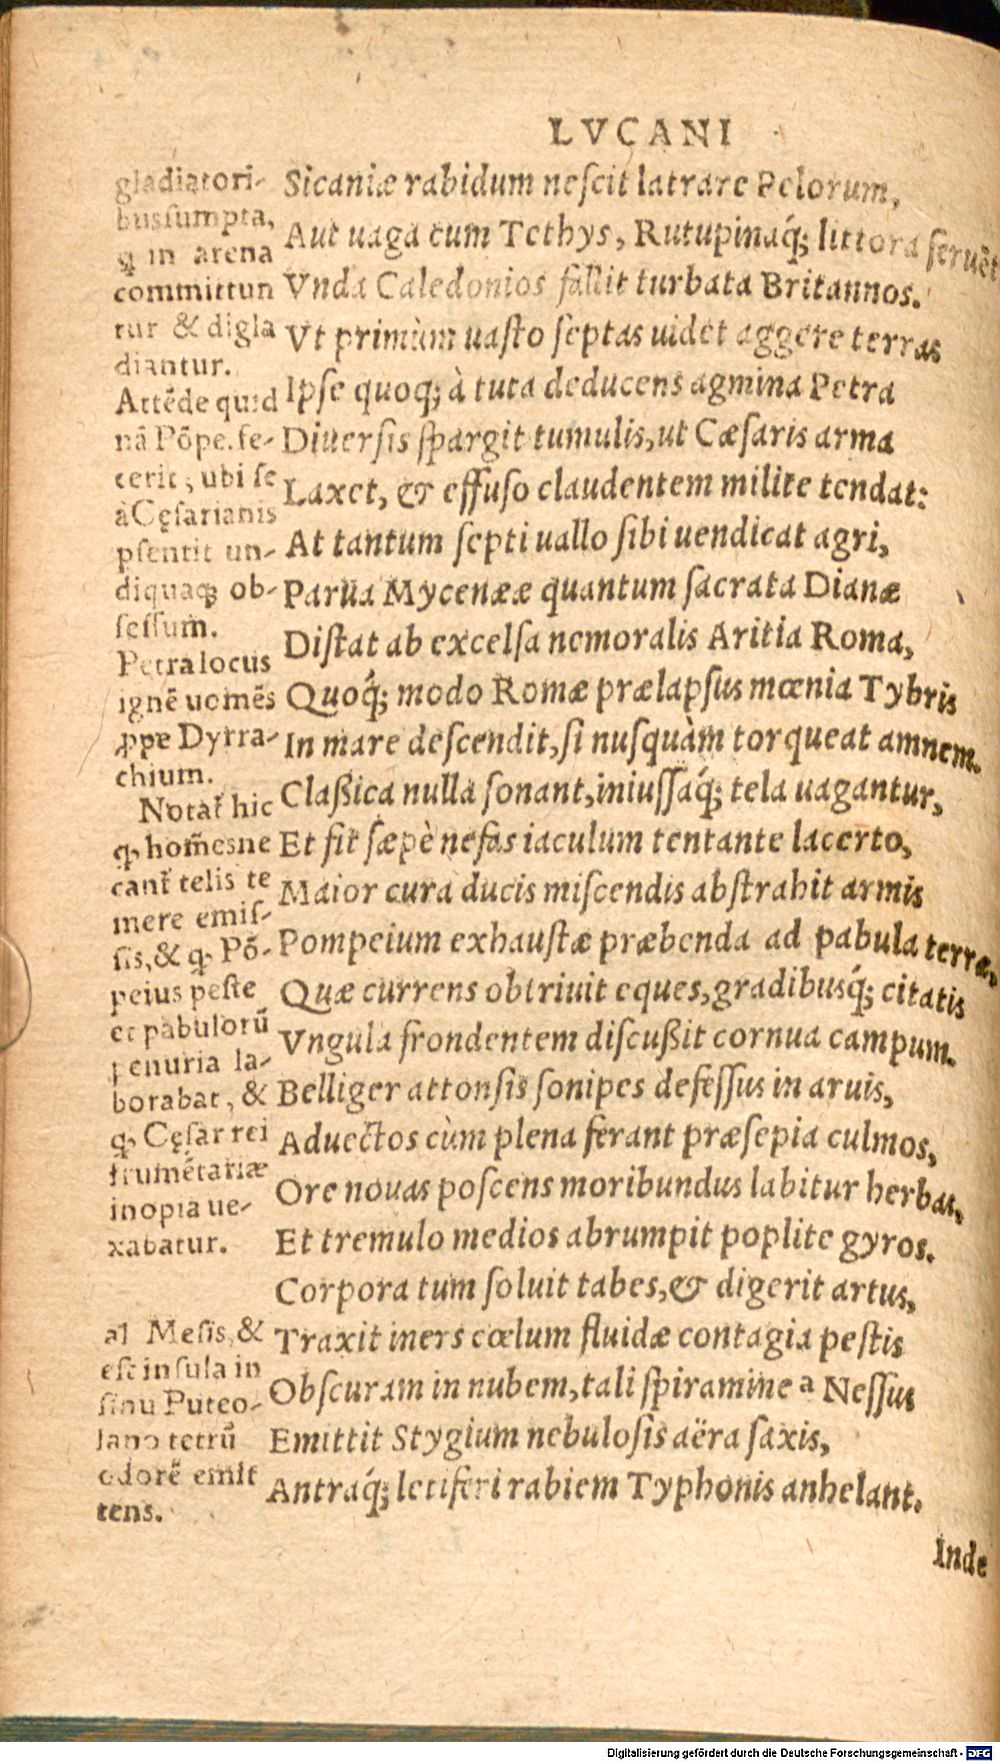 LVCANI
gladiatori-
bus sumpta,
ꝙ in arena
committun
tur & digla
diantur.
Attẽde quid
nã Põpe. fe-
cerit, ubi se
à Cęsarianis
psentit un-
diquaqꝫ ob-
sessum.
Petra locus
ignẽ uomẽs
ꝓpe Dyrra-
chium.
Notat̃ hic
ꝙ hom̃es ne
cant̃ telis te
mere emis-
sis, & ꝙ Põ-
peius peste
et pabulorũ
penuria la-
borabat, &
ꝙ Cęsar rei
frumẽtariæ
inopia ue-
xabatur.
al Mesis, &
est insula in
sinu Puteo-
lano tetrũ
odorẽ emit
tens.
Sicaniæ rabidum nescit latrare Pelorum,
Aut uaga cum Tethys, Rutupinaq́; littora feruẽt
Vnda Caledonios fallit turbata Britannos.
Vt primùm uasto septas uidet aggere terras
Ipse quoq; à tuta deducens agmina Petra
Diuersis spargit tumulis, ut Cæsaris arma
Laxet, & effuso claudentem milite tendat:
At tantum septi uallo sibi uendicat agri,
Parua Mycenææ quantum sacrata Dianæ
Distat ab excelsa nemoralis Aritia Roma,
Quoq́; modo Romæ prælapsus mœnia Tybris
In mare descendit, si nusquàm torqueat amnem.
Claßica nulla sonant, iniussaq́; tela uagantur,
Et fit sæpè nefas iaculum tentante lacerto,
Maior cura ducis miscendis abstrahit armis
Pompeium exhaustæ præbenda ad pabula terræ,
Quæ currens obtriuit eques, gradibusq́; citatis
Vngula frondentem discußit cornua campum.
Belliger attonsis sonipes defessus in aruis,
Aduectos cùm plena ferant præsepia culmos,
Ore nouas poscens moribundus labitur herbas,
Et tremulo medios abrumpit poplite gyros.
Corpora tum soluit tabes, & digerit artus,
Traxit iners cœlum fluidæ contagia pestis
Obscuram in nubem, tali spiramine a Nessus
Emittit Stygium nebulosis aëra saxis,
Antraq́; letiferi rabiem Typhonis anhelant.
Inde
Digitalisierung gefördert durch die Deutsche Forschungsgemeinschaft - DFG